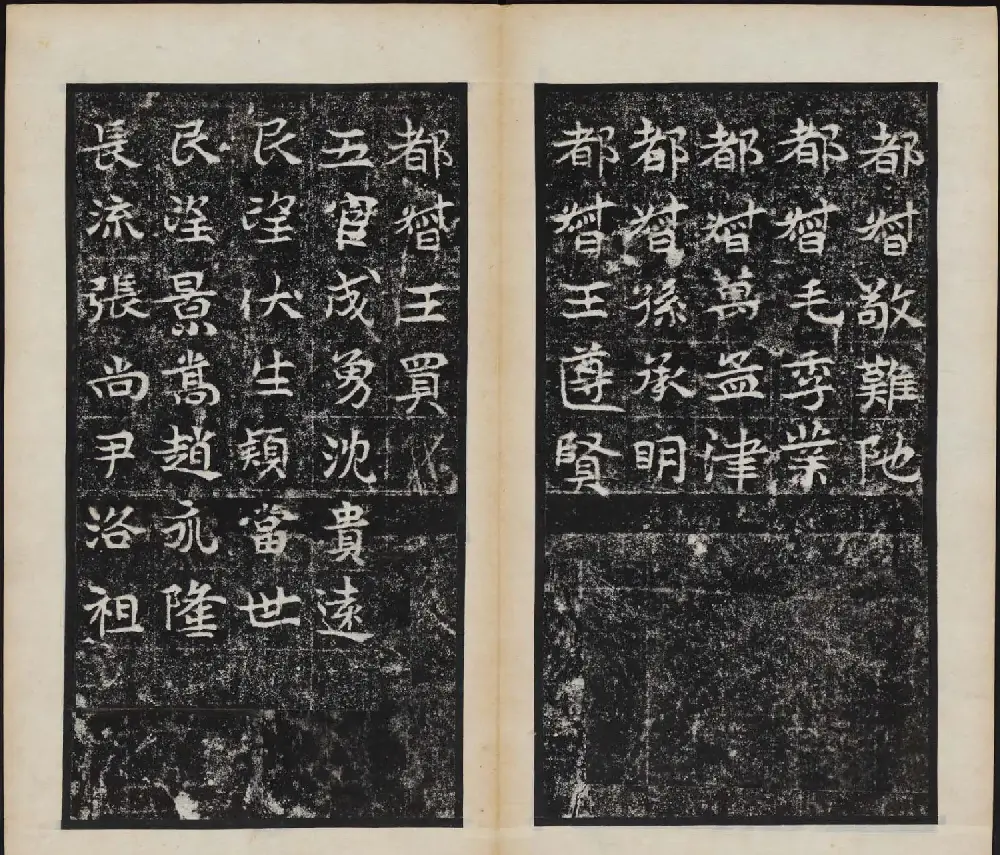 都督敬難陁
都督毛季業
都督萬孟津
都督孫承明
都督王遵賢
都督王買
五官成勇沈貴遠
民望伏生穎當世
民望景嵩趙永隆
長流張尚尹洛祖